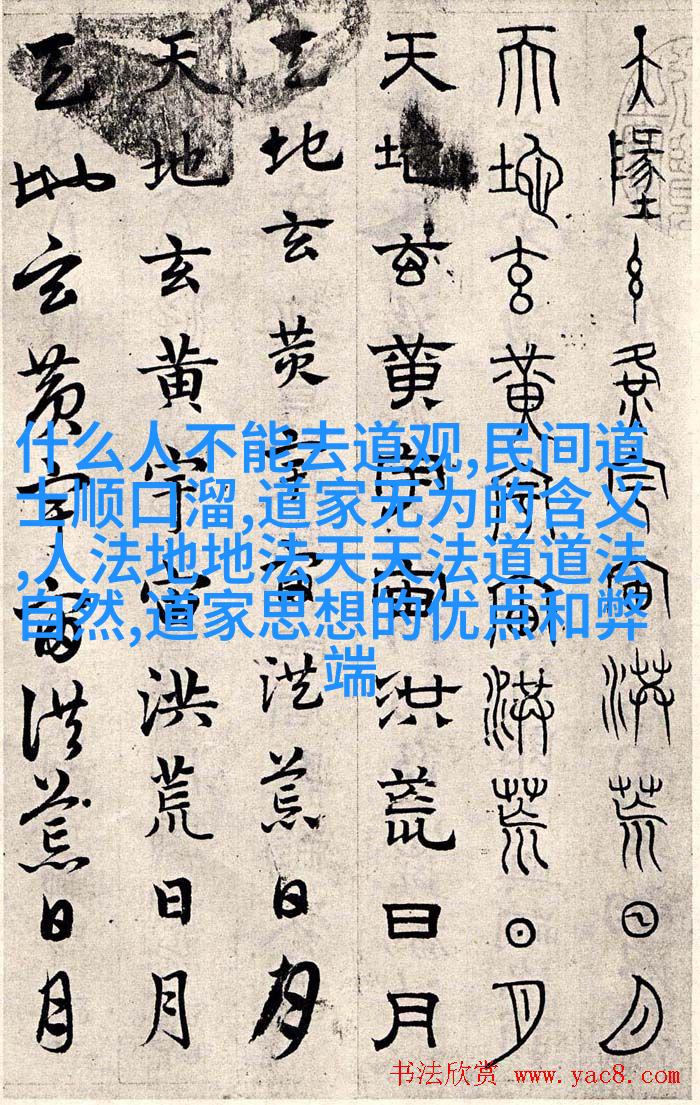 天墬玄黄宇宙洪荒日月
天地玄黄宇宙洪荒日月
天地玄黄宇宙洪荒日月
天地玄黄宇宙洪荒日月
天地玄黄宇宙洪荒日月
天地玄黄宇宙洪荒日月
什么人不能去道观,民间道
士顺口溜,道家无为的含义
,人法地地法天天法道道法
自然,道家思想的优点和弊
端
书法欣赏 www.yac8.com